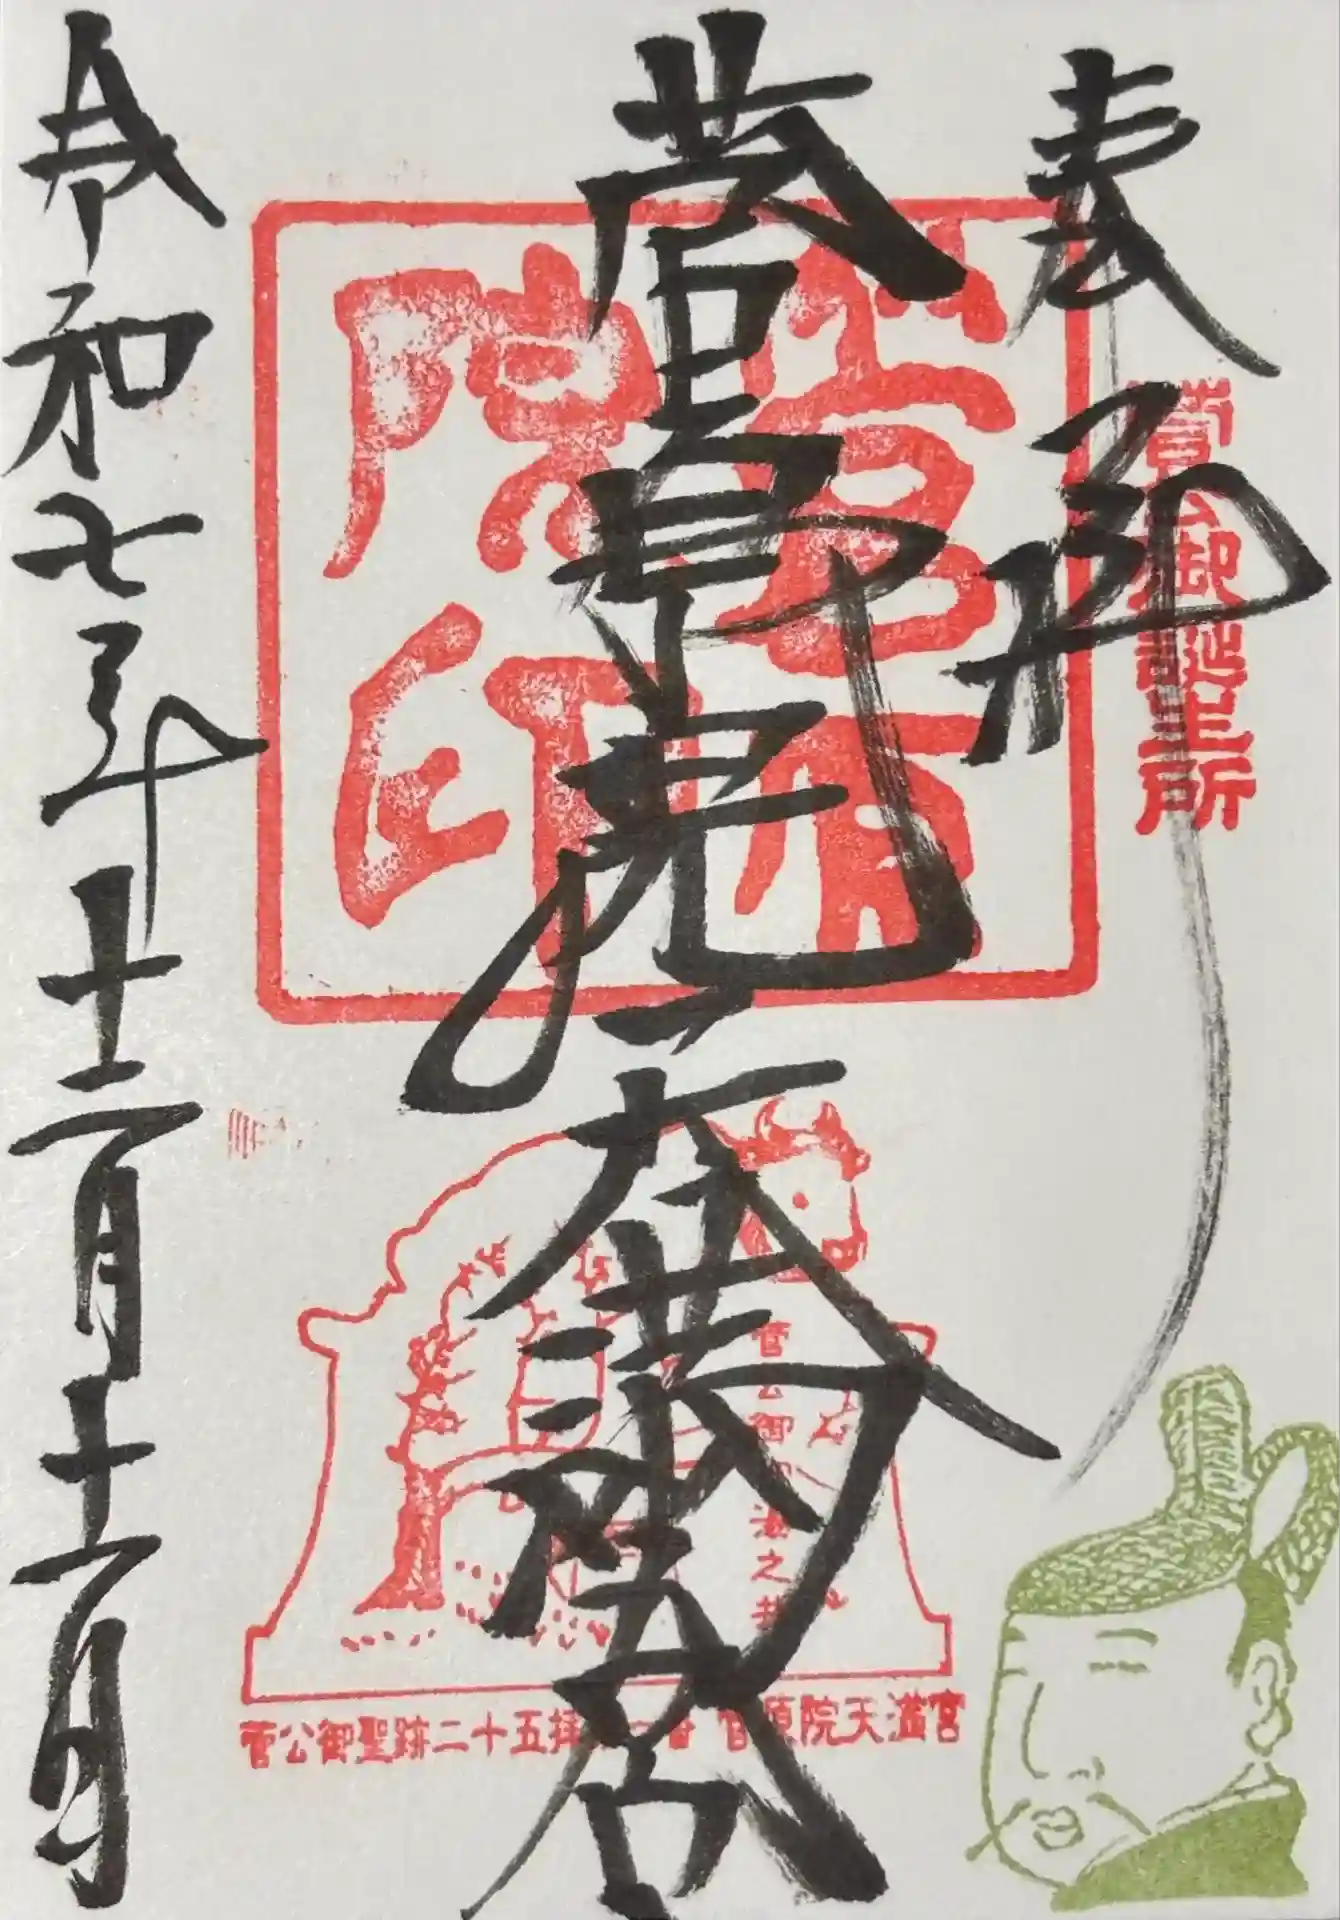 奉拝
菅公御誕生所
菅原院天満宮
菅原院印
菅公御初湯之井
菅公御聖跡二十五拝 番 菅原院天満宮
令和七年十二月十二日